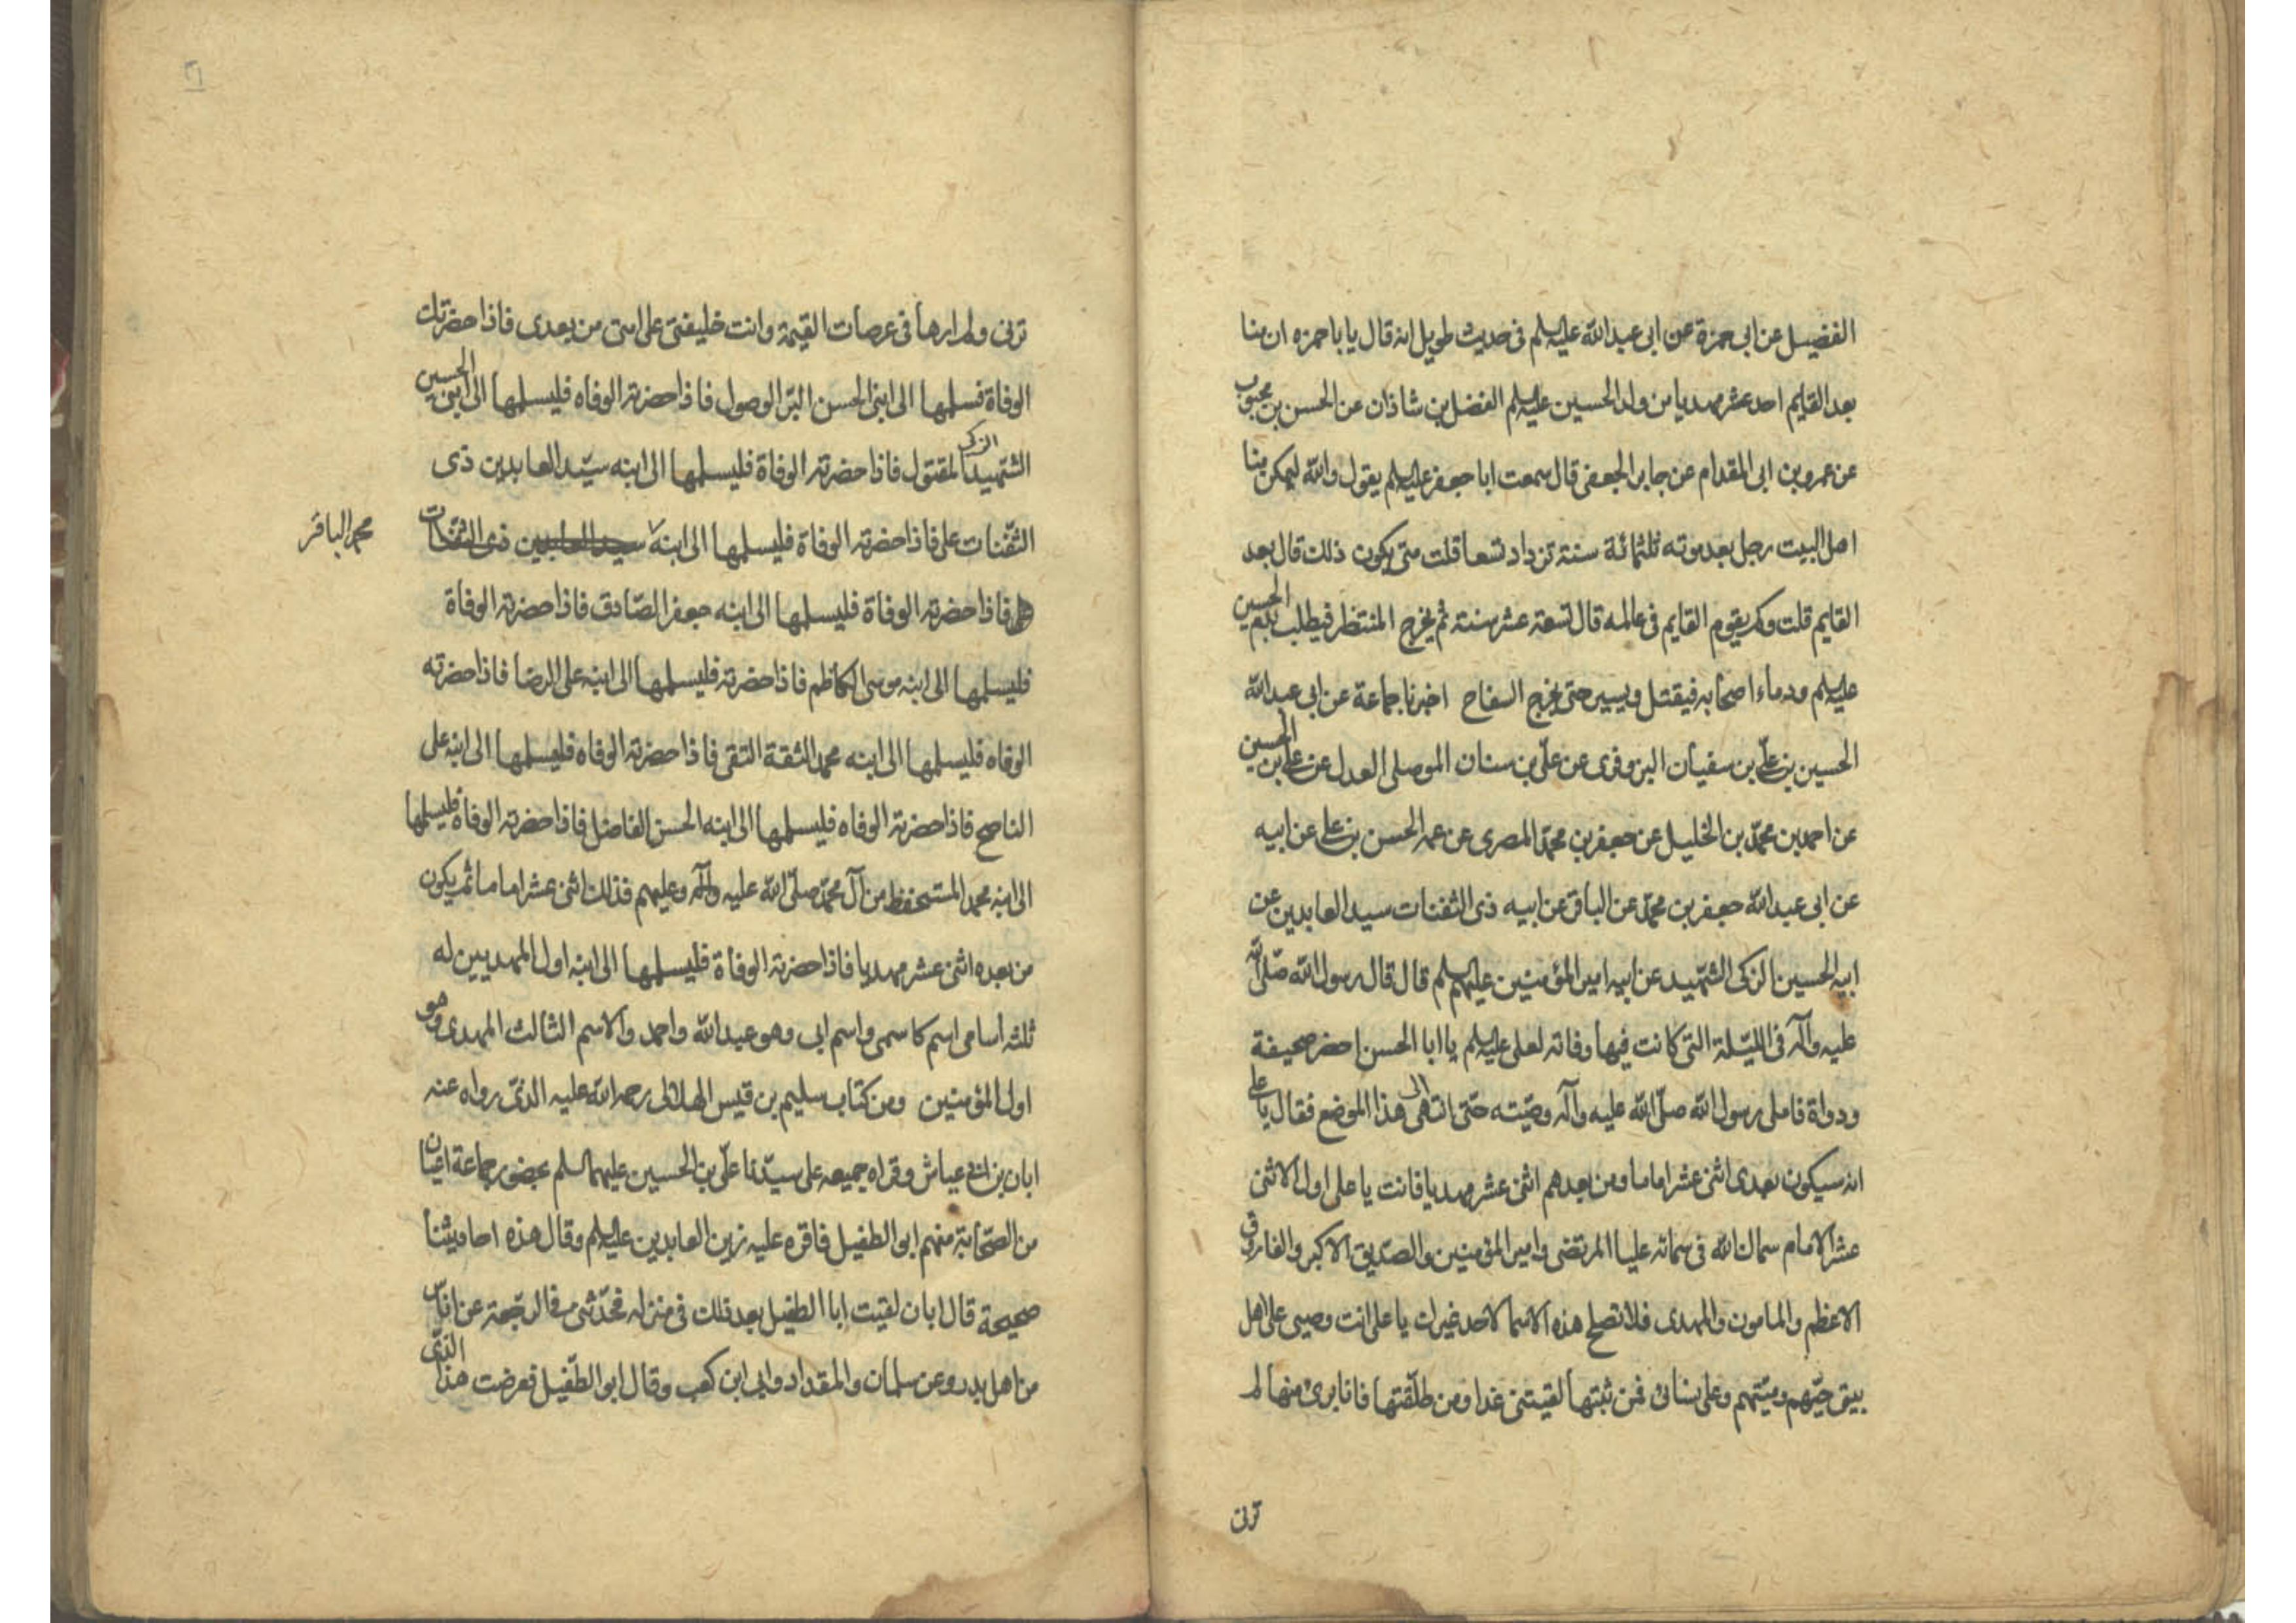 الفضيل عن ابى حمزة عن ابى عبد الله عليه السلم فى حديث طويل انه قال يا با حمزه ان منا
بعد القايم احد عشر مهديا من ولد الحسين عليه السلم الفضل بن شاذان عن الحسن بن محبوب
عن عمرو بن ابى المقدام عن جابر الجعفى قال سمعت ابا جعفر عليه السلم يقول والله ليمكن منا
اهل البيت رجل بعد موته ثلثمائة سنة تزداد تسعا قلت متى يكون ذلك قال بعد
القايم قلت وكم يقوم القايم فى عالمه قال تسعة عشر سنة ثم يخرج المنتظر فيطلب بدم الحسين
عليه السلم ودماء اصحابه فيقتل ويسير حتى يخرج السفاح اخبرنا جماعة عن ابى عبد الله
الحسين بن على بن سفيان البزوفرى عن على بن سنان الموصلى العدل عن على بن الحسين
عن احمد بن محمد بن الخليل عن جعفر بن محمد المصرى عن عمه الحسن بن على عن ابيه
عن ابى عبد الله جعفر بن محمد عن الباقر عن ابيه ذى الثفنات سيد العابدين عن
ابيه الحسين الزكى الشهيد عن ابيه امير المؤمنين عليهم السلم قال قال رسول الله صلى الله
عليه وآله فى الليلة التى كانت فيها وفاته لعلى عليه السلم يا ابا الحسن احضر صحيفة
ودواة فاملى رسول الله صلى الله عليه وآله وصيته حتى انتهى الى هذا الموضع فقال يا على
انه سيكون بعدى اثنى عشر اماما ومن بعدهم اثنى عشر مهديا فانت يا على اول الاثنى
عشر الامام سماك الله فى سمائه عليا المرتضى وامير المؤمنين والصديق الاكبر والفاروق
الاعظم والمامون والمهدى فلا تصلح هذه الاسما لاحد غيرك يا على انت وصيى على اهل
بيتى حيهم وميتهم وعلى نسائى فمن ثبتها لقيتنى غدا ومن طلقتها فانا برئ منها لم
ترنى
ترنى ولم ارها فى عرصات القيمة وانت خليفتى على امتى من بعدى فاذا حضرتك
الوفاة فسلمها الى ابنى الحسن البر الوصول فاذا حضرته الوفاه فليسلمها الى ابنى الحسين
الشهيد الزكى المقتول فاذا حضرته الوفاة فليسلمها الى ابنه سيد العابدين ذى
الثفنات على فاذا حضرته الوفاة فليسلمها الى ابنه سيد العابدين ذى الثفنات
محمد الباقر
فاذا حضرته الوفاة فليسلمها الى ابنه جعفر الصادق فاذا حضرته الوفاة
فليسلمها الى ابنه موسى الكاظم فاذا حضرته فليسلمها الى ابنه على الرضا فاذا حضرته
الوفاه فليسلمها الى ابنه محمد الثقة التقى فاذا حضرته الوفاه فليسلمها الى ابنه على
الناصح فاذا حضرته الوفاه فليسلمها الى ابنه الحسن الفاضل فاذا حضرته الوفاة فليسلمها
الى ابنه محمد المستحفظ من آل محمد صلى الله عليه وآله وعليهم فذلك اثنى عشر اماما ثم يكون
من بعده اثنى عشر مهديا فاذا حضرته الوفاة فليسلمها الى ابنه اول المهديين له
ثلثه اسامى اسم كاسمى واسم ابى وهو عبد الله واحمد والاسم الثالث المهدى وهو
اول المؤمنين ومن كتاب سليم بن قيس الهلالى رحمه الله عليه الذى رواه عنه
ابان بن ابى عياش وقراه جميعه على سيدنا على بن الحسين عليهما السلم بحضور جماعة اعيان
من الصحابة منهم ابو الطفيل فاقره عليه زين العابدين عليه السلم وقال هذه احاديثنا
صحيحة قال ابان لقيت ابا الطفيل بعد ذلك فى منزله فحدثنى فى الرجعة عن اناس
من اهل بدر وعن سلمان والمقداد وابى ابن كعب وقال ابو الطفيل فعرضت هذا الذى